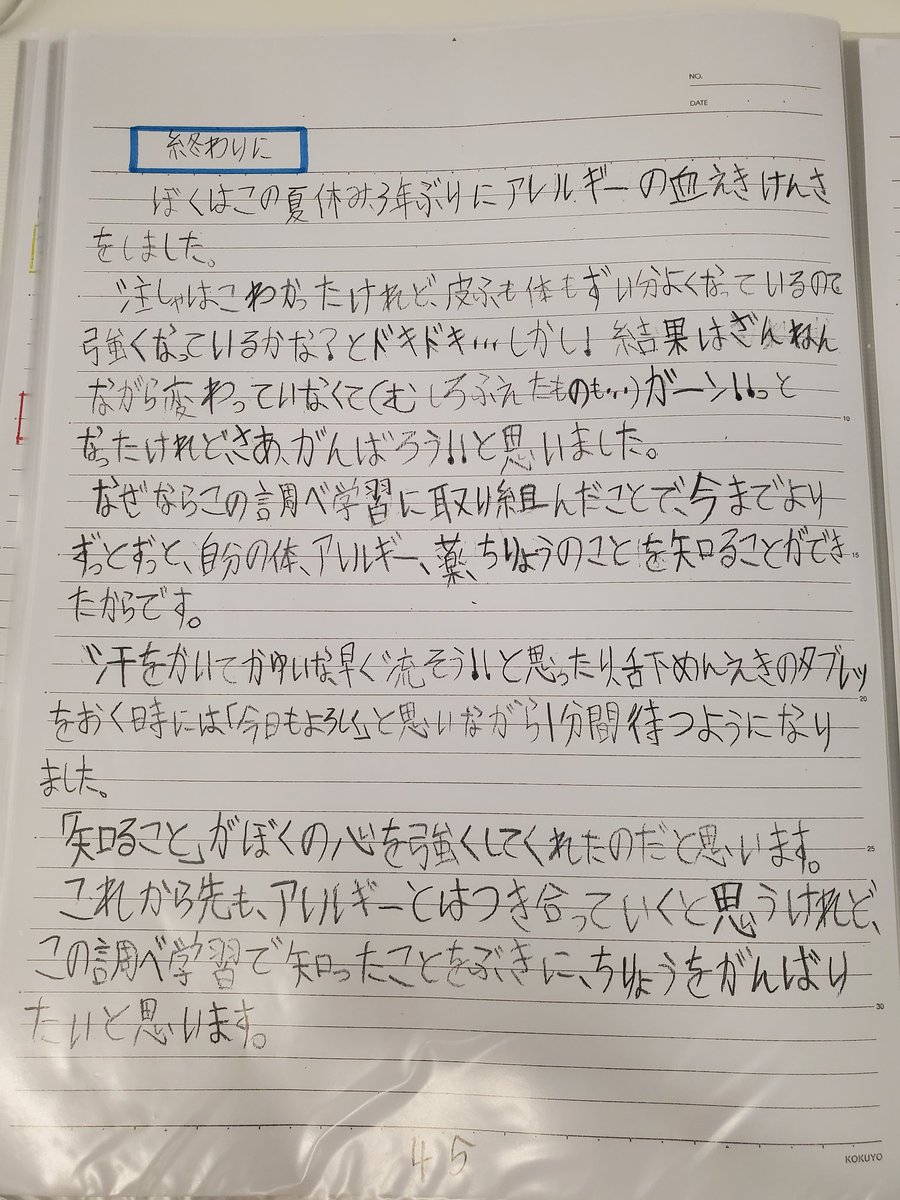 NO.
DATE
終わりに
ぼくはこの夏休み、3年ぶりにアレルギーの血えきけんさ
をしました。
注しゃはこわかったけれど、皮ふも体もずい分よくなっているので
強くなっているかな?とドキドキ…しかし!結果はざんねん
ながら変わっていなくて(むしろふえたものも…)ガーン!!っと
なったけれど、さあ、がんばろう!!と思いました。
なぜならこの調べ学習に取り組んだことで、今までより
ずっとずっと、自分の体、アレルギー、薬、ちりょうのことを知ることができ
たからです。
汗をかいてかゆいな早く流そう!!と思ったり、舌下めんえきのタブレッ
をおく時には「今日もよろしく」と思いながら1分間待つようになり
ました。
「知ること」がぼくの心を強くしてくれたのだと思います。
これから先も、アレルギーとはつき合っていくと思うけれど、
この調べ学習で知ったことをぶきに、ちりょうをがんばり
たいと思います。
10
15
20
25
30
45
KOKUYO